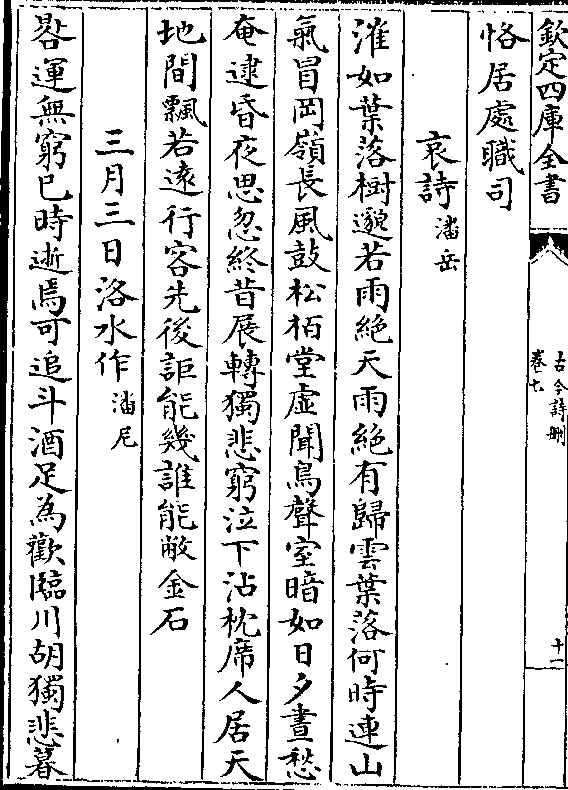 欽定四庫全書
古今詩刪
卷七
十一
恪居處職司
哀詩 潘岳
漼如葉落樹邈若雨絶天雨絶有歸雲葉落何時連山
氣冒岡嶺長風鼓松栢堂虛聞鳥聲室暗如日夕晝愁
奄逮昏夜思忽終昔展轉獨悲窮泣下沾枕席人居天
地間飄若逺行客先後詎能幾誰能敝金石
三月三日洛水作 潘尼
晷運無窮已時逝焉可追斗酒足為歡臨川胡獨悲暮